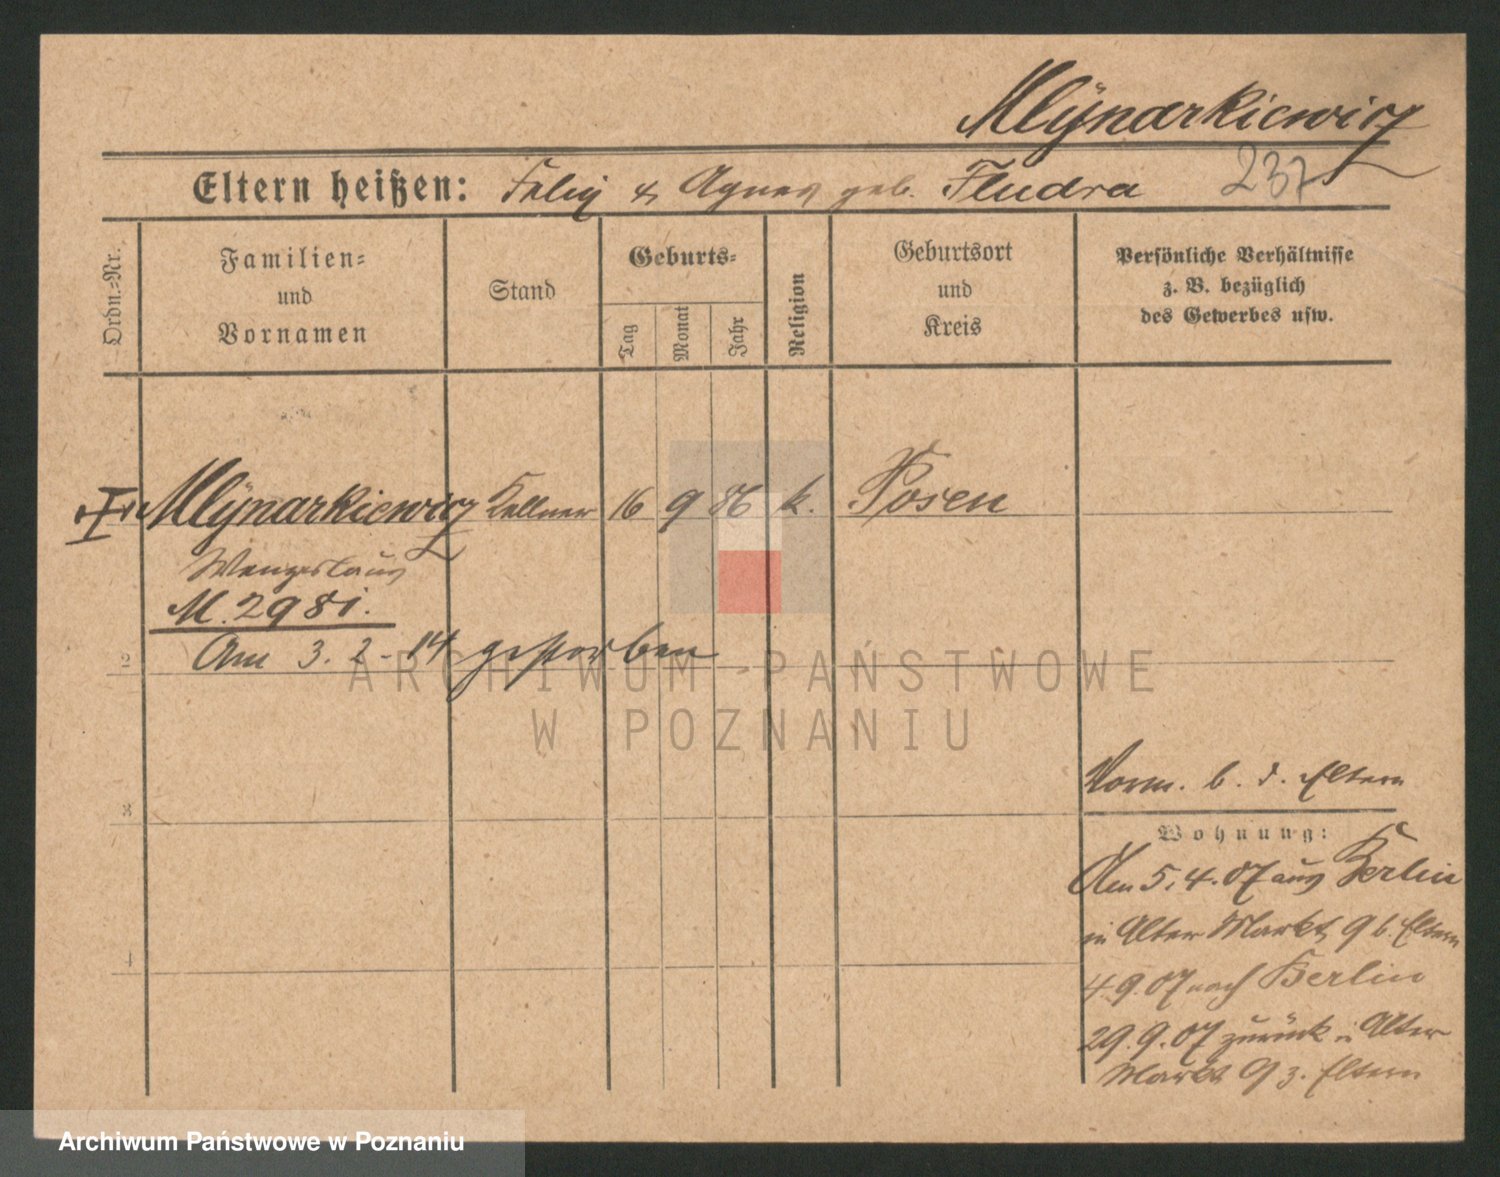 Mlÿnarkiewicz
237
Eltern heißen: Felix & Agnes geb. Fludra
Ordn.-Nr.
Familien- und Vornamen
Stand
Geburts-
Tag
Monat
Jahr
Religion
Geburtsort und Kreis
Persönliche Verhältnisse
z. B. bezüglich
des Gewerbes usw.
Mlÿnarkiewicz Kellner 16 9 86 k. Posen
Wenzeslaus
M. 2981.
2
Am 3. 2. 14 gestorben
ARCHIWUM PAŃSTWOWE
W POZNANIU
Vorm. b. d. Eltern
3
Wohnung:
Am 5.4.07 aus Berlin
in Alter Markt 9 b. Eltern
4
4.9.07 nach Berlin
29.9.07 zurück i. Alter
Markt 9 z. Eltern
Archiwum Państwowe w Poznaniu